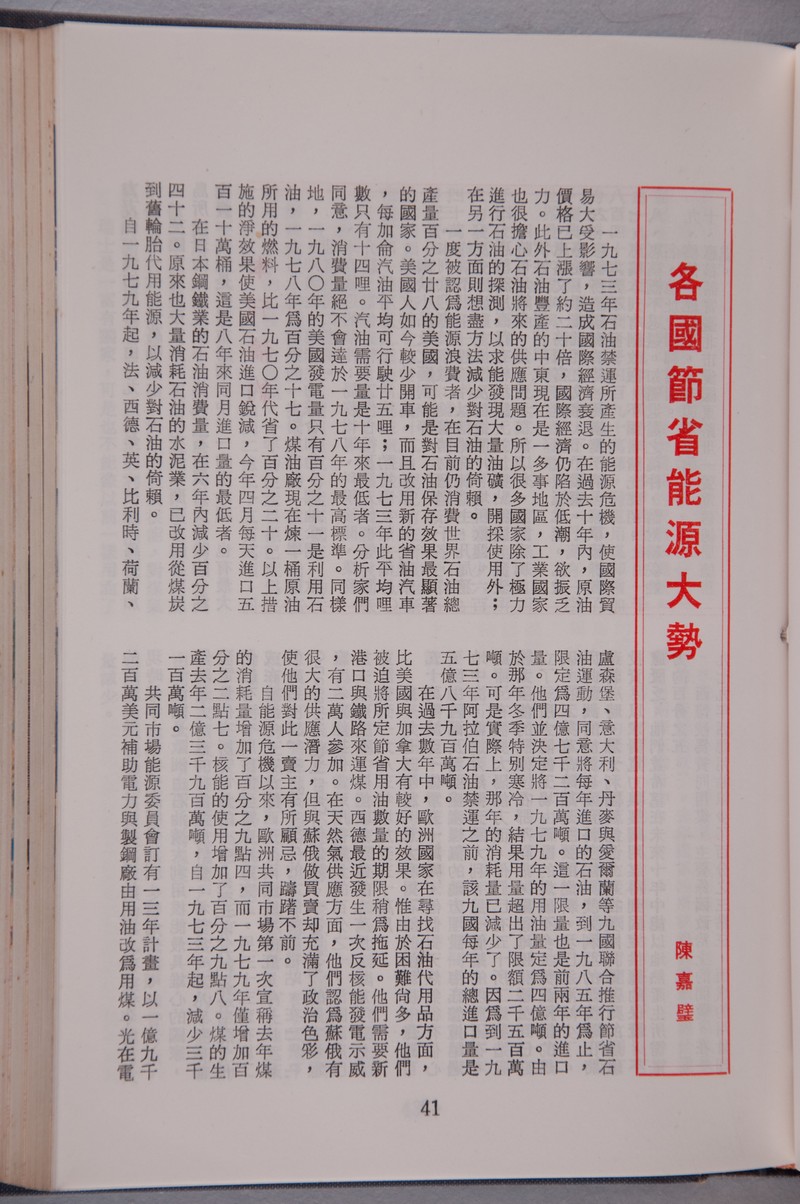 各國節省能源大勢
陳嘉璧
一九七三年石油禁運所產生的能源危機，使國際貿
易大受影響，造成國際經濟衰退。在過去十年內，原油
價格已上漲了約二十倍，國際經濟仍陷於低潮，欲振乏
力。此外石油豐產的中東現在是一多事地區，工業國家
也很擔心石油將來的供應問題。所以很多國家除了極力
進行石油的探測，以求能發現大量油礦，開採使用外；
在另一方面則想盡方法減少對石油的倚賴。
一度被認爲能源浪費者，在目前仍消費世界石油總
產量百分之廿八的美國，可能是對石油保存效果最顯著
的國家。美國人如今較少開車，而且改用新的省油汽車
，每加侖汽油平均可行駛廿五哩；一九七三年此平均哩
數只有十四哩。汽油需要量是十年來最低者。分析家們
同意，消費量絕不會達於一九七八年的最高標準。同樣
地，一九八〇年的美國發電量只有百分之十一是利用石
油，一九七八年爲百分之十七。煤油廠現在煉一桶原油
所用的燃料，比一九七〇年代省了百分之二十。以上措
施的淨效果使美國石油進口銳減，今年四月每天進口五
百一十萬桶，這是八年來同月進口量的最低者。
在日本鋼鐵業的石油消費量，在六年內減少百分之
四十二。原來也大量消耗石油的水泥業，已改用從煤炭
到舊輪胎代用能源，以減少對石油的倚賴。
自一九七九年起，法、西德、英、比利時、荷蘭、
盧森堡、意大利、丹麥與愛爾蘭等九國聯合推行節省石
油運動，同意將每年進口的石油，到一九八五年爲止，
限定爲四億七千二百萬噸。這一限量也是前兩年的進口
量。他們並決定將一九七九年的用油量定爲四億噸。由
於那年冬季特別寒冷，結果用量超出了限額二千五百萬
噸。可是實際上，那年的消耗量已減少了。因爲到一九
七三年阿拉伯石油禁運之前，該九國每年的總進口量是
五億八千九百萬噸。
在過去數年中，歐洲國家在尋找石油代用品方面，
比美國與加拿大有較好的效果。惟由於困難尙多，他們
被迫將所定節省用油數量的期限稍爲拖延。他們需要新
港口與鐵路來運煤。西德最近發生一次反核能發電示威
，有二萬人參加。在天然氣供應方面，他們認爲蘇俄有
很大的供應潛力，但與蘇俄做買賣却充滿了政治色彩，
使他們對此一賣主有所顧忌，躊躇不前。
自能源危機以來，歐洲共同市場第一次宣稱去年煤
的消耗量增加了百分之九點四，而一九七九年僅增加百
分之二點七。核能的使用增加了百分之九點八。煤的生
產去年二億三千九百萬噸，自一九七三年起，減少三千
一百萬噸。
共同市場能源委員會訂有一三年計畫，以一億九千
二百萬美元補助電力與製鋼廠由用油改爲用煤。光在電
41